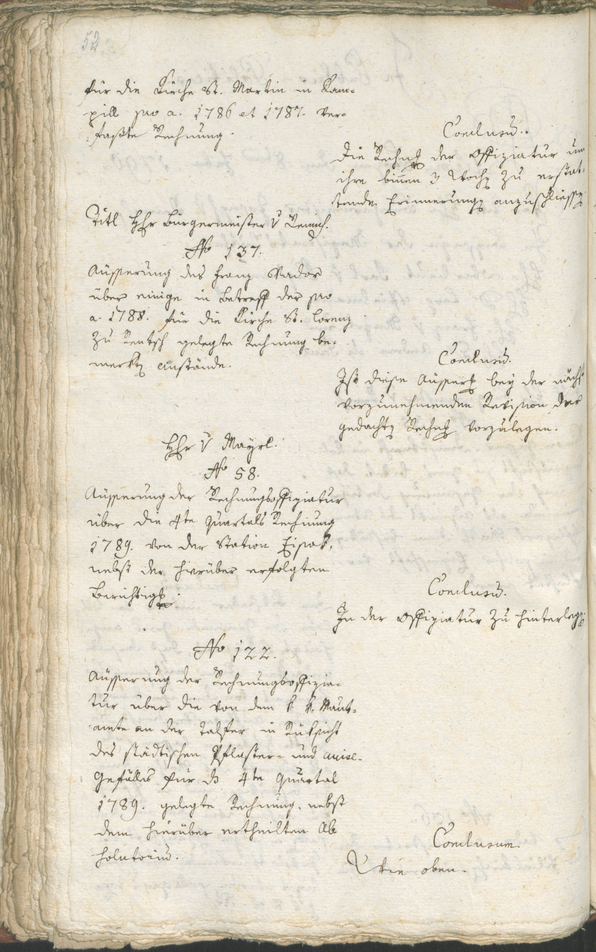 52.
für die Kirche St. Martin in Kam-
pill pro a. 1786 et 1787. ver-
faßte Rechnung.
Conclusum.
Die Rechng der Offiziatur um
ihre binnen 3 Wochen zu erstat-
tende Erinnerungen anzuschliessen
Titl. Hhr Bürgermeister v
No 137.
Äusserung des Franz
über einige in Betreff der pro
a. 1788. für die Kirche St. Lorenz
zu Rentsch gelegte Rechnung be-
merkten Anstände.
Conclusum.
Ist diese Äusserg bey der nächst
vorzunehmenden Revision der
gedachten Rechng vorzulegen.
Hhr v Mayrl.
No 58.
Äusserung der Rechnungsoffiziatur
über die 4te Quartals Rechnung
1789. von der Station Eisak,
nebst der hierüber erfolgten
Berichtigg.
Conclusum.
In der Offiziatur zu hinterlegen.
No 122.
Äusserung der Rechnungsoffizia-
tur über die von dem k. k. Maut-
amte an der Talfer in Rüksicht
des städtischen Pflaster- und
Gefälls für ds 4te Quartal
1789. gelegte Rechnung, nebst
dem hierüber ertheilten Ab-
solutorium.
Conclusum.
Wie oben.